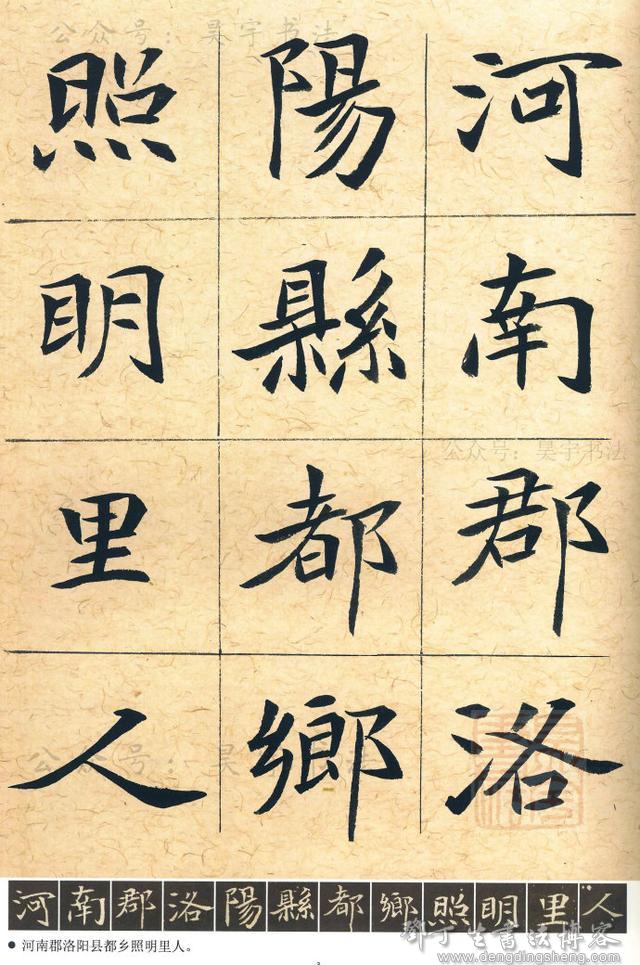 公众号：昊宇书法
河南郡洛
陽縣都鄉
照明里人
公众号：昊宇书法
公众号：昊宇书法
河南郡洛陽縣都鄉照明里人
● 河南郡洛阳县都乡照明里人。
3
鄧丁生書法博客
www.dengdingsheng.com